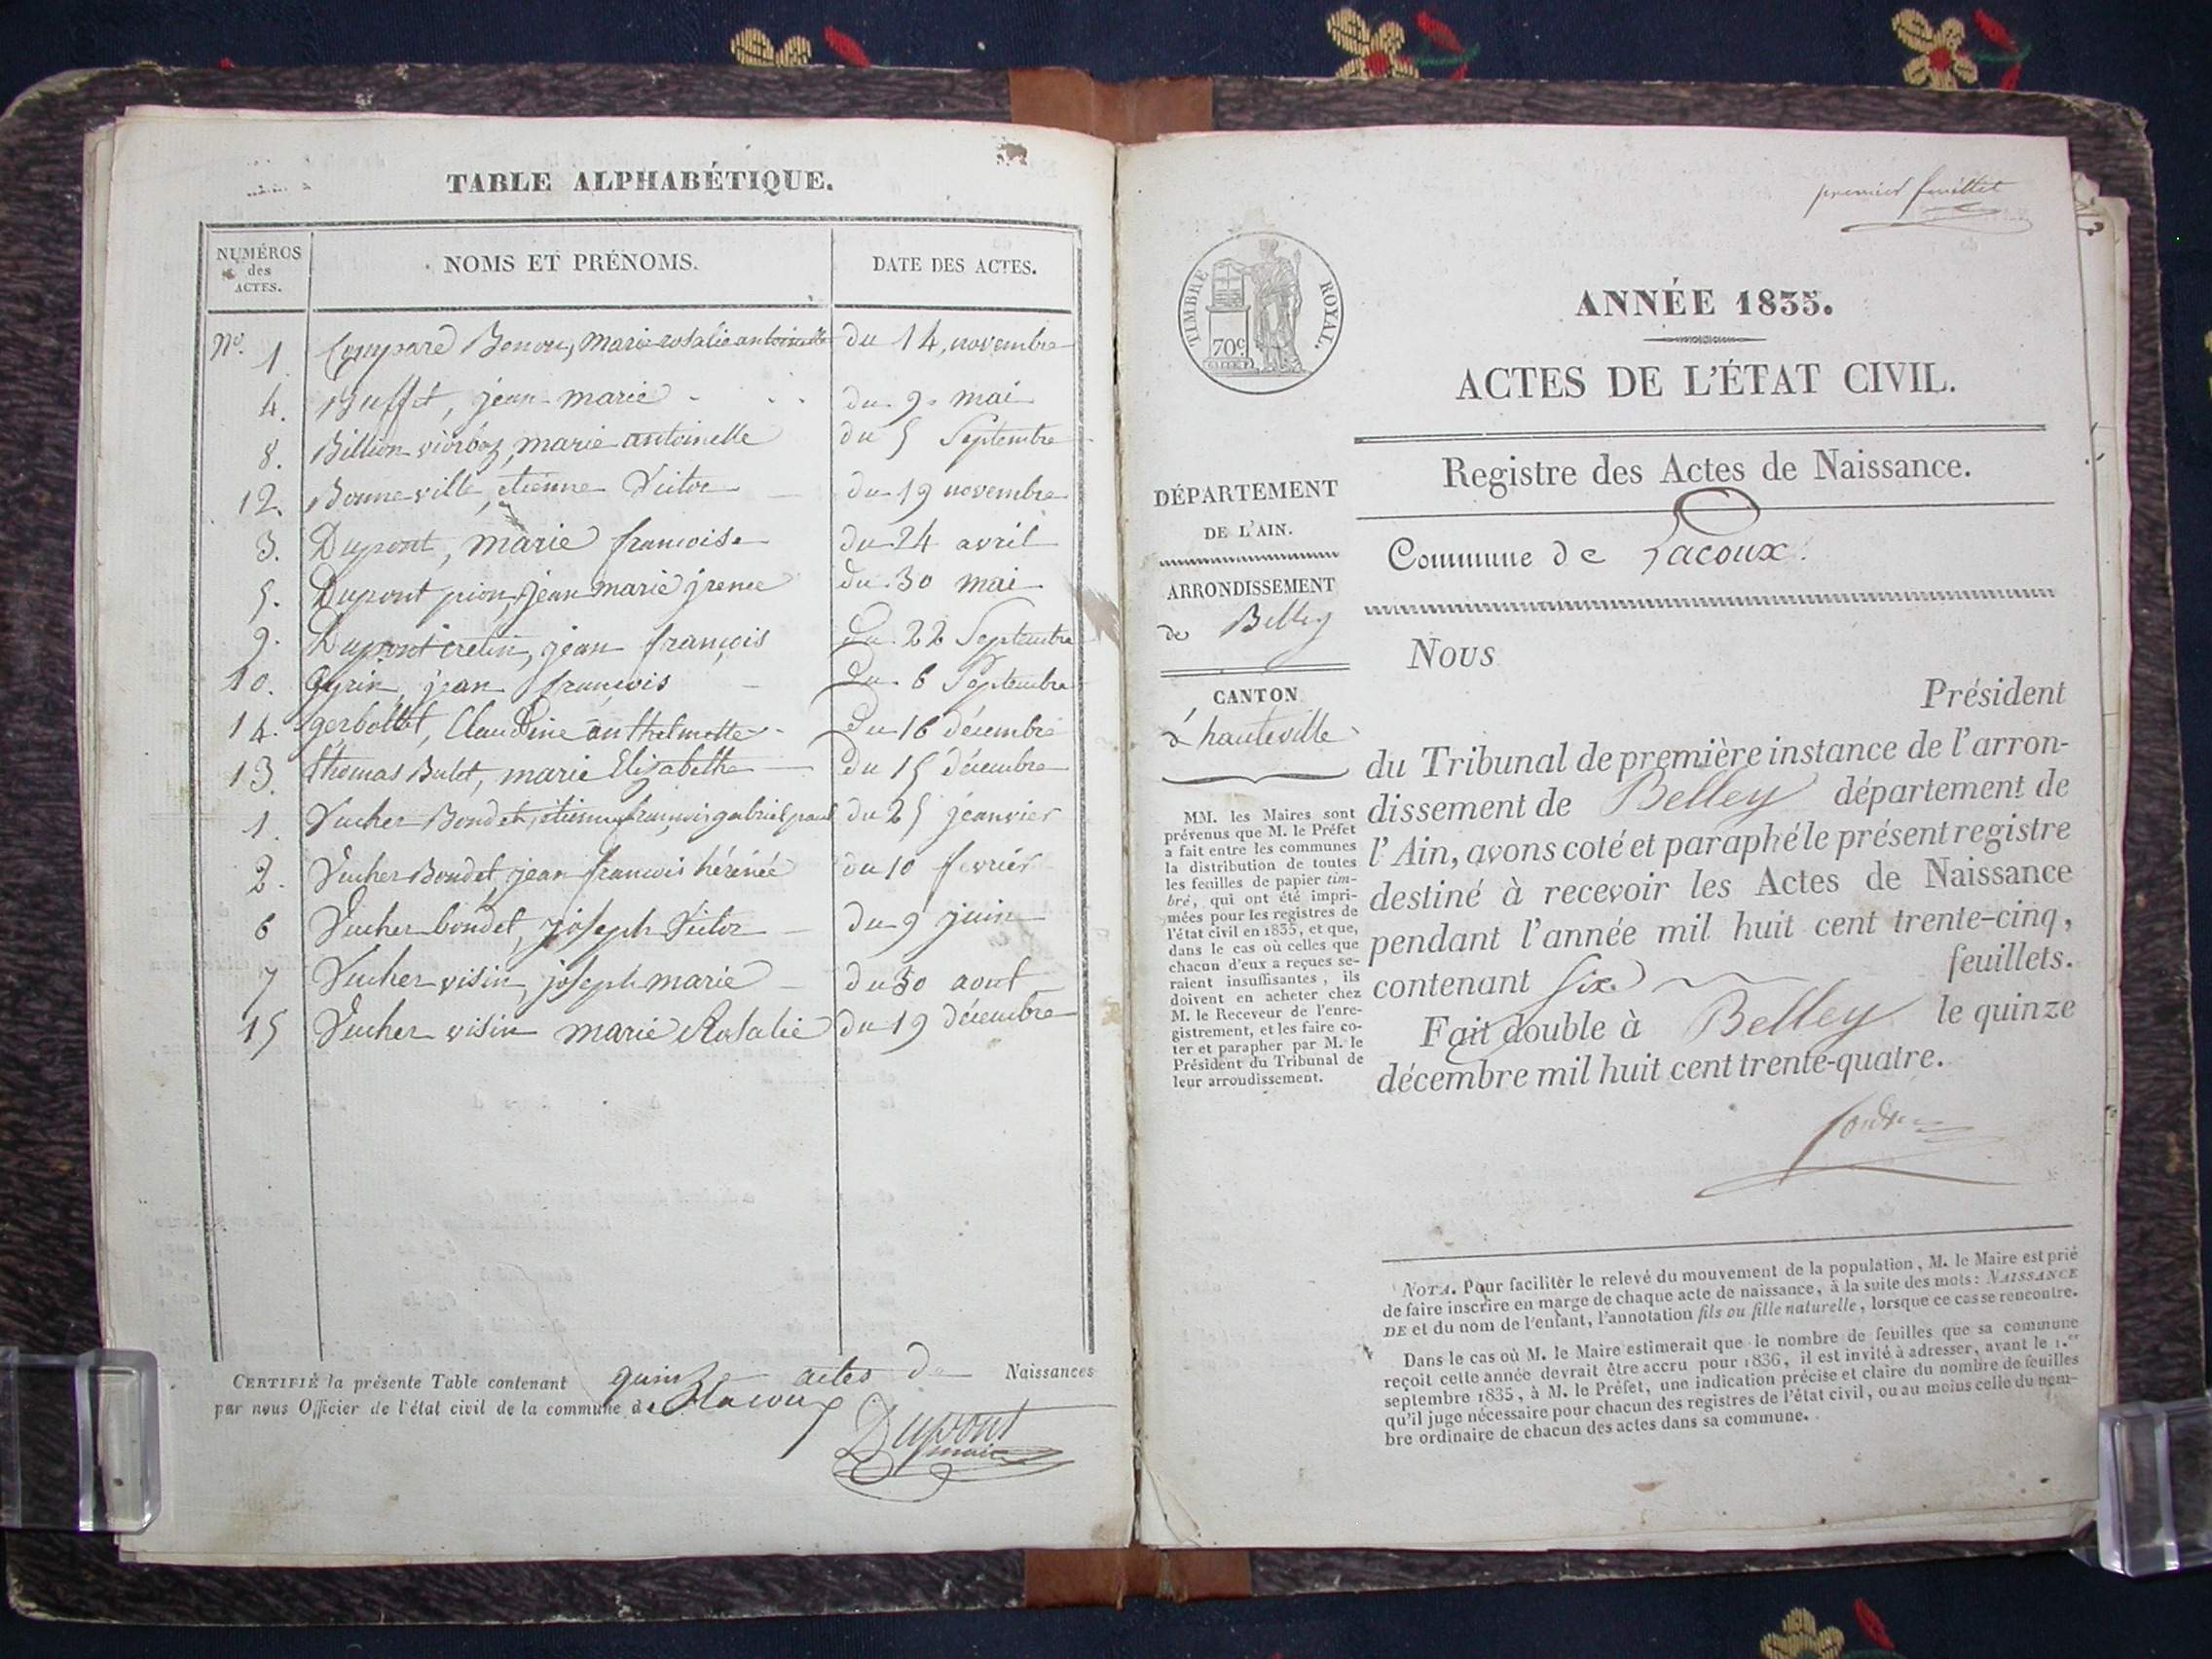 TABLE ALPHABÉTIQUE.
NUMÉROS
des
ACTES.
NOMS ET PRÉNOMS.
DATE DES ACTES.
No. 1 marie rosalie antoinette du 14 novembre
4. Buffet, jean marie du 9 mai
8. Billion marie antoinette du 5 Septembre
12. Bonneville, etienne Victor du 19 novembre
3. Dupont, marie francoise du 24 avril
5. Dupont pion, jean marie jrenee du 30 mai
9. Dupont cretin, jean françois Du 22 Septembre
10. jean francois Du 6 Septembre
14. gerbollet, Claudine anthelmette Du 16 décembre
13. thomas Bulet, marie Elizabethe Du 15 décembre
1. Vucher Bondet, etienne françois gabriel paul du 25 jeanvier
2. Vucher Bondet, jean francois hérénée du 10 fevrier
6 Vucher bondet, joseph Victor du 9 juin
7 Vucher visin, joseph marie du 30 aout
15 Vucher visin marie Rosalie du 19 décembre
CERTIFIÉ la présente Table contenant quinze actes de Naissances
par nous Officier de l'état civil de la commune de Lacoux
Dupont
maire
premier feuillet
TIMBRE ROYAL.
70c
ANNÉE 1835.
ACTES DE L'ÉTAT CIVIL.
Registre des Actes de Naissance.
Commune de Lacoux.
DÉPARTEMENT
DE L'AIN.
ARRONDISSEMENT
de Belley
CANTON
d'hauteville
MM. les Maires sont
prévenus que M. le Préfet
a fait entre les communes
la distribution de toutes
les feuilles de papier tim-
bré, qui ont été impri-
mées pour les registres de
l'état civil en 1835, et que,
dans le cas où celles que
chacun d'eux a reçues se-
raient insuffisantes, ils
doivent en acheter chez
M. le Receveur de l'enre-
gistrement, et les faire co-
ter et parapher par M. le
Président du Tribunal de
leur arroudissement.
Nous
Président
du Tribunal de première instance de l'arron-
dissement de Belley département de
l'Ain, avons coté et paraphé le présent registre
destiné à recevoir les Actes de Naissance
pendant l'année mil huit cent trente-cinq,
contenant six feuillets.
Fait double à Belley le quinze
décembre mil huit cent trente-quatre.
NOTA. Pour faciliter le relevé du mouvement de la population, M. le Maire est prié
de faire inscrire en marge de chaque acte de naissance, à la suite des mots: NAISSANCE
DE et du nom de l'enfant, l'annotation fils ou fille naturelle, lorsque ce cas se rencontre.
Dans le cas où M. le Maire estimerait que le nombre de feuilles que sa commune
reçoit cette année devrait être accru pour 1836, il est invité à adresser, avant le 1.er
septembre 1835, à M. le Préfet, une indication précise et claire du nombre de feuilles
qu'il juge nécessaire pour chacun des registres de l'état civil, ou au moins celle du nom-
bre ordinaire de chacun des actes dans sa commune.